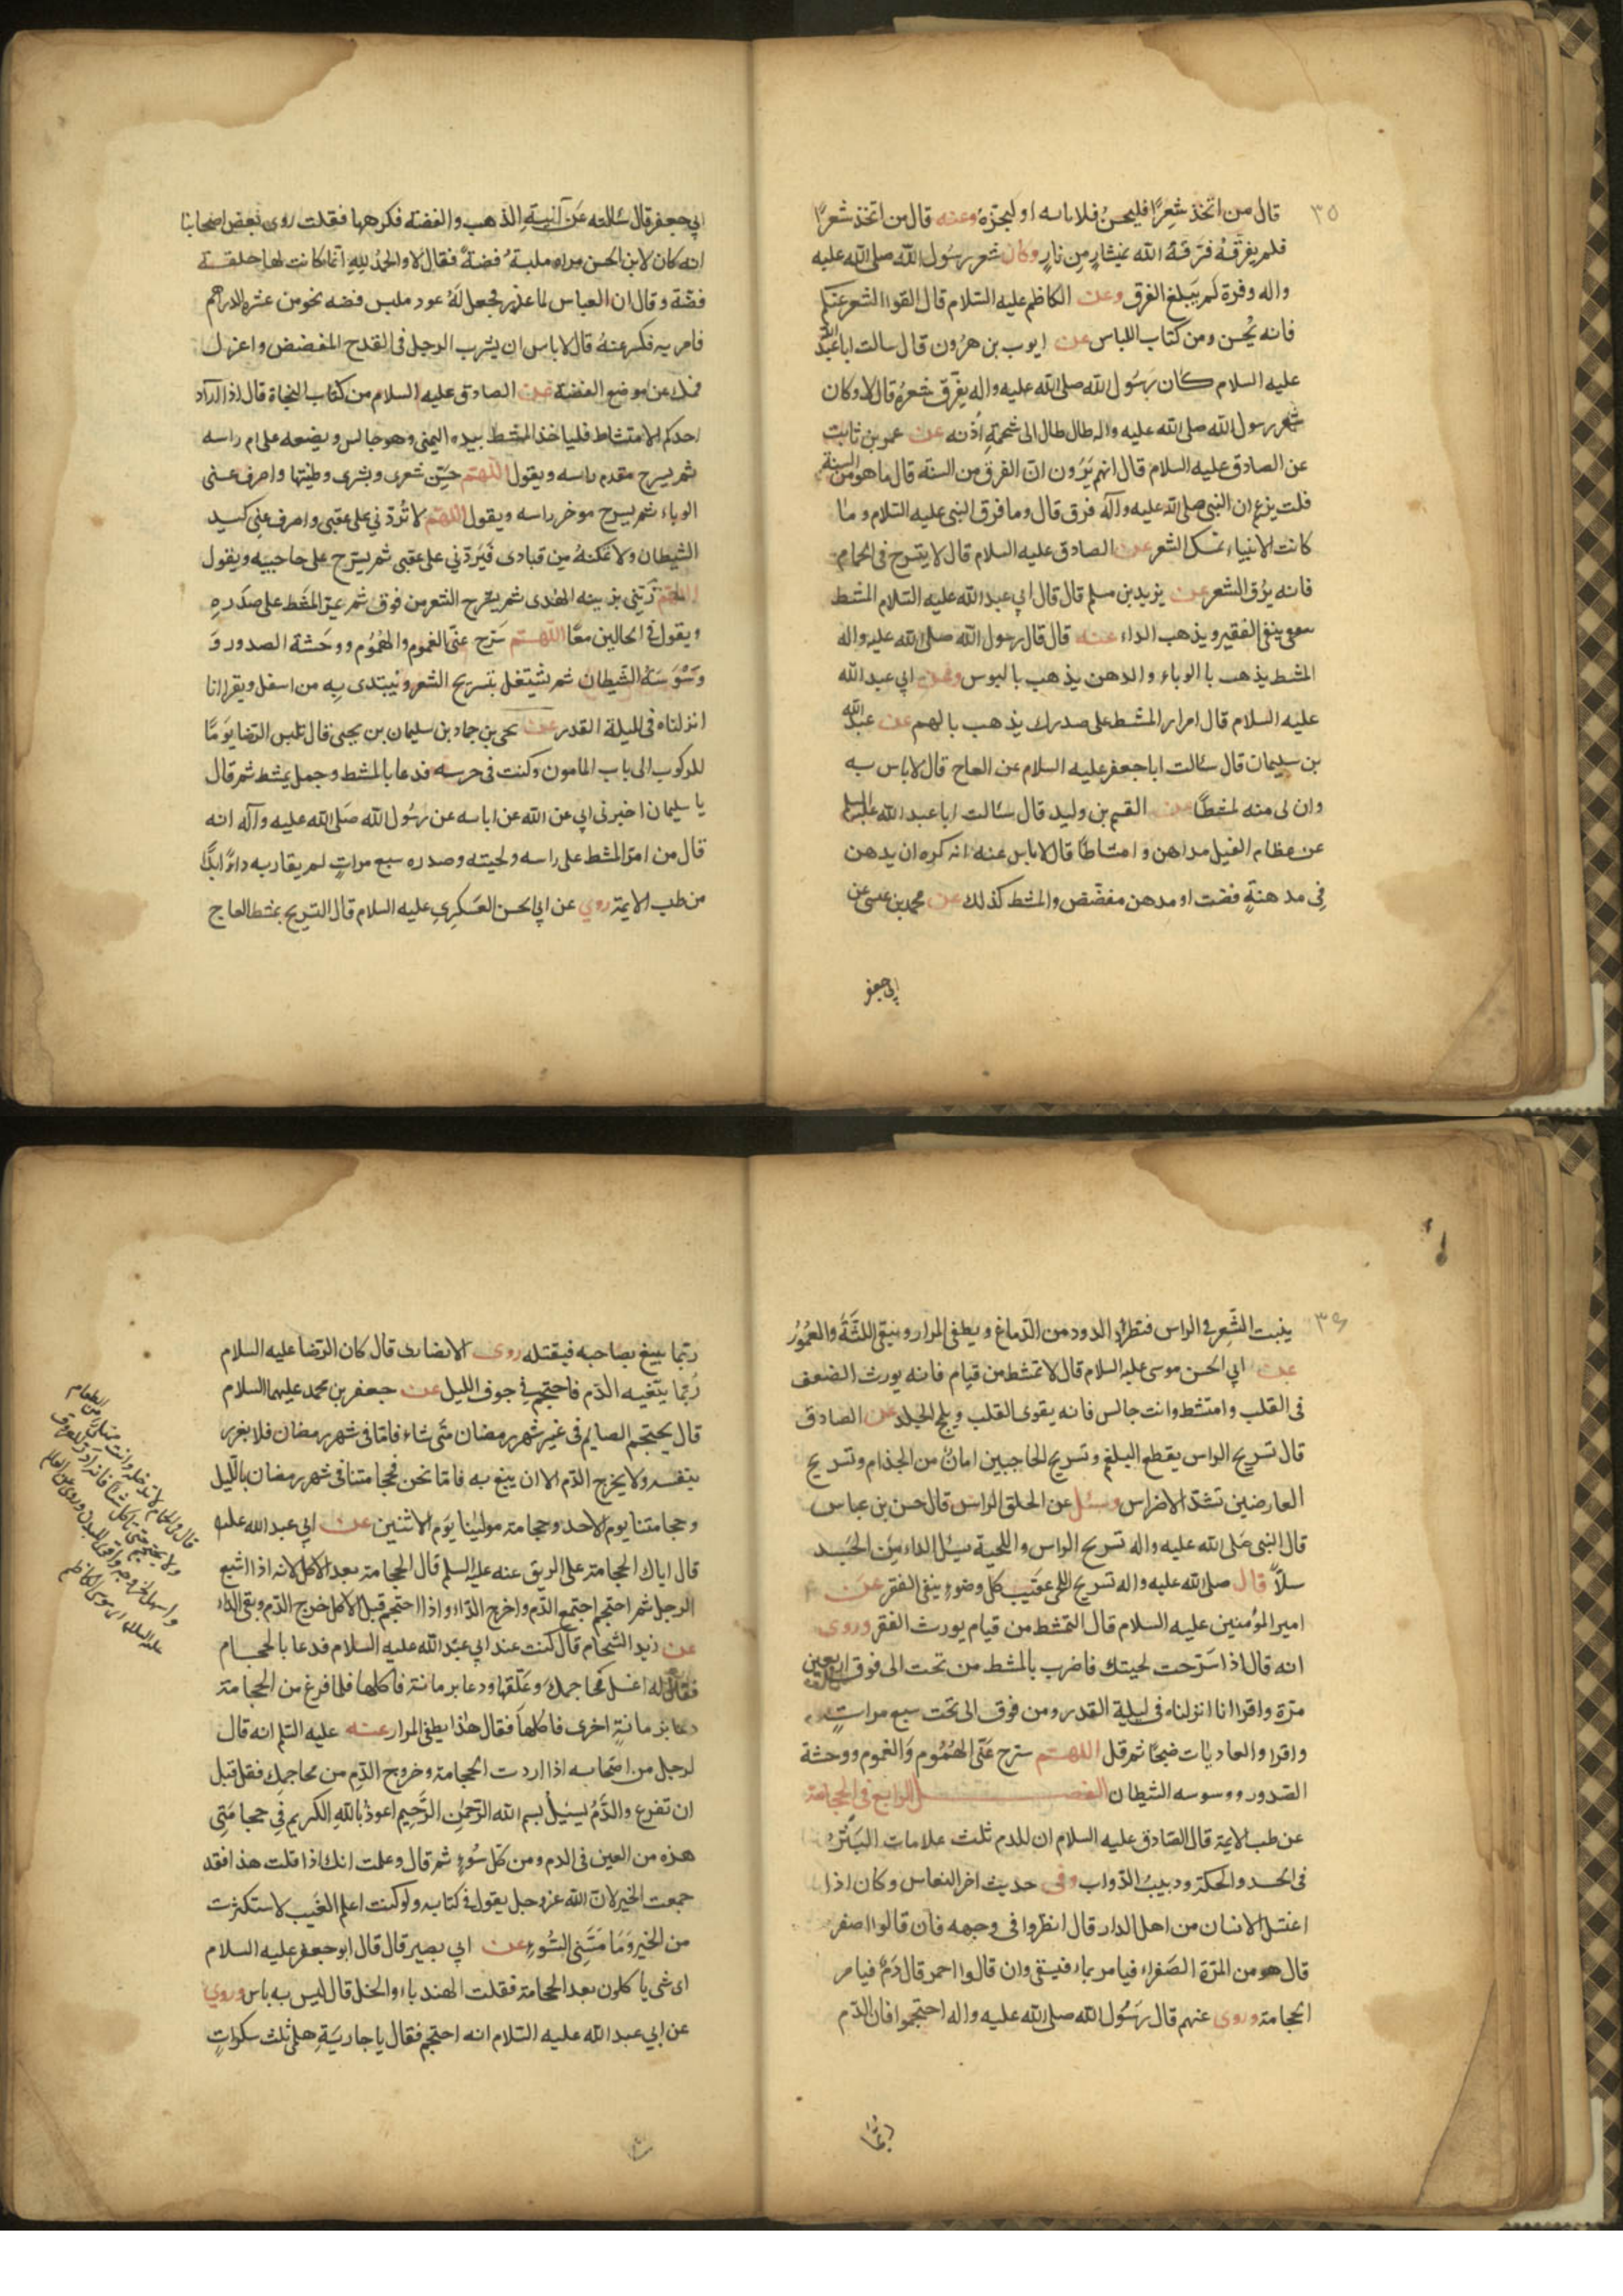 ٣٥
قال من اتخذ شعرًا فليحسن فلاباسه او ليجتزه وعنه قال من اتخذ شعرًا
فلم يفرقه فرقه الله بمنشار من نار وكان شعر رسول الله صلى الله عليه
واله وفرة لم يبلغ الفرق وعن الكاظم عليه السلام قال القوا الشعر عنكم
فانه يحسن ومن كتاب اللباس عن ايوب بن هرون قال سالت ابا عبد الله
عليه السلام كان رسول الله صلى الله عليه واله يفرق شعره قال لا وكان
شعر رسول الله صلى الله عليه واله طال طال الى شحمة اذنه عن عمر بن ثابت
عن الصادق عليه السلام قال انهم يرون ان الفرق من السنة قال ما هو من السنة
قلت يزعم ان النبي صلى الله عليه وآله فرق قال وما فرق النبي عليه السلام وما
كانت الانبياء تمسك الشعر عن الصادق عليه السلام قال لا يتسرح في الحمام
فانه يرق الشعر عن يزيد بن مسلم قال قال ابي عبد الله عليه السلام المشط
ينفي الفقر ويذهب الداء عنه قال قال رسول الله صلى الله عليه واله
المشط يذهب باالوباء والدهن يذهب بالبوس وعن ابي عبد الله
عليه السلام قال امرار المشط على صدرك يذهب بالهم عن عبد الله
بن سليمان قال سئالت ابا جعفر عليه السلام عن العاج قال لا باس به
وان لى منه لمشطًا عن القسم بن وليد قال سئالت ابا عبد الله عليه السلم
عن عظام الفيل مداهن وامشاطًا قال لا باس عنه انه كره ان يدهن
في مدهنة فضت او مدهن مفضض والمشط كذلك عن محمد بن عيسى عن
ابي جعفر
ابي جعفر قال سئالته عن آنية الذهب والفضة فكرهها فقلت روى بعض اصحابنا
انه كان لابى الحسن مراه ملبة فضة فقال لا والحمد لله انما كانت لها حلقة
فضة وقال ان العباس لما عذر فجعل له عود ملبس فضه نحو من عشره الدراهم
فامر به فكسر عنه قال لا باس ان يشرب الرجل في القدح المفضض واعزل
فمك عن موضع الفضة عن الصادق عليه السلام من كتاب النجاة قال اذا اراد
احدكم الامتشاط فلياخذ المشط بيده اليمنى وهو جالس ويضعه على ام راسه
ثم يسرح مقدم راسه ويقول اللهم حسن شعرى وبشرى وطيبها واصرف عنى
الوباء ثم يسرح موخر راسه ويقول اللهم لا تردني على عقبى واصرف عني كيد
الشيطان ولا تمكنه من قيادى فيردني على عقبى ثم يسرح على حاجبيه ويقول
اللهم زيني بزينه الهدى ثم يسرح الشعر من فوق ثم يمر المشط على صدره
ويقول في الحالين معًا اللهم سرح عني الغموم والهموم ووحشة الصدور و
وسوسة الشيطان ثم يشتغل بتسريح الشعر ويبتدى به من اسفل ويقرا انا
انزلناه في الليلة القدر عن يحيى بن حماد بن سليمان بن يحيى قال تلبس الرضا يومًا
للركوب الى باب المامون وكنت في حرسه فدعا بالمشط وجعل يمشط ثم قال
يا سليمان اخبرني ابي عن الله عن اباسه عن رسول الله صلى الله عليه وآله انه
قال من امر المشط على راسه ولحيته وصدره سبع مرات لم يقاربه داء ابدًا
من طب الايمة روي عن ابي الحسن العسكري عليه السلام قال التسريح بمشط العاج
٣٦
ينبت الشعر في الراس فتطرد الدود من الدماغ ويطفى المرار وينقى اللثة والعمور
عن ابي الحسن موسى عليه السلام قال لا تمشط من قيام فانه يورث الضعف
في القلب وامتشط وانت جالس فانه يقوى القلب ويلج الجلد عن الصادق
قال تسريح الراس يقطع البلغم وتسريح الحاجبين امان من الجذام وتسريح
العارضين تشد الاضراس وسئل عن الحلق الراس قال حسن بن عباس
قال النبي صلى الله عليه واله تسريح الراس واللحية يسل الداء من الجسد
سلاً قال صلى الله عليه واله تسريح اللحى عقيب كل وضوء ينفى الفقر عن
امير المؤمنين عليه السلام قال التمشط من قيام يورث الفقر وروى
انه قال اذا سرحت لحيتك فاضرب بالمشط من تحت الى فوق اربعين
مرة واقرا انا انزلناه في ليلة القدر ومن فوق الى تحت سبع مرات
واقرا والعاديات ضبحًا ثم قل اللهم سرح عني الهموم والغموم ووحشة
الصدور ووسوسه الشيطان الفصل الرابع في الحجامة
عن طب الايمة قال الصادق عليه السلام ان للدم ثلث علامات البثر
في الجسد والحكة ودبيب الدواب وفي حديث اخر النعاس وكان اذا
اعتل الانسان من اهل الدار قال انظروا في وجهه فان قالوا اصفر
قال هو من المرة الصفراء فيامر بماء فيسقى وان قالوا احمر قال دم فيامر
الحجامة وروى عنهم قال رسول الله صلى الله عليه واله احتجموا فان الدم
ربما
ربما يبيغ بصاحبه فيقتله روى الانصارى قال كان الرضا عليه السلام
ربما يتغيه الدم فاحتجم في جوف الليل عن جعفر بن محمد عليهما السلام
قال يحتجم الصايم في غير شهر رمضان متى شاء فاما في شهر رمضان فلا يغرر
بنفسه ولا يخرج الدم الا ان يبيغ به فاما نحن فحجامتنا في شهر رمضان بالليل
وحجامتنا يوم الاحد وحجامة موالينا يوم الاثنين عن ابي عبد الله عليه
قال اياك الحجامة على الريق عنه عليه السلم قال الحجامة بعد الاكل لانه اذا اشبع
الرجل ثم احتجم اجتمع الدم واخرج الداء واذا احتجم قبل الاكل خرج الدم وبقى الداء
عن زيد الشحام قال كنت عند ابي عبد الله عليه السلام فدعا بالحجام
فقال له اغسل محاجمك وعلقها ودعا برمانة فاكلها فلما فرغ من الحجامة
دعا برمانة اخرى فاكلها فقال هذا يطفى المرار عنه عليه السلم انه قال
لرجل من اصحابه اذا اردت الحجامة وخروج الدم من محاجمك فقل قبل
ان تفرغ والدم يسيل بسم الله الرحمن الرحيم اعوذ بالله الكريم في حجامتى
هذه من العين في الدم ومن كل سوء ثم قال وعلمت انك اذا قلت هذا فقد
جمعت الخير لان الله عز وجل يقول في كتابه ولو كنت اعلم الغيب لاستكثرت
من الخير وما مسني السوء عن ابي بصير قال قال ابو جعفر عليه السلام
اى شى ياكلون بعد الحجامة فقلت الهندباء والخل قال ليس به باس وروي
عن ابي عبد الله عليه السلام انه احتجم فقال يا جارية هلمى ثلث سكرات